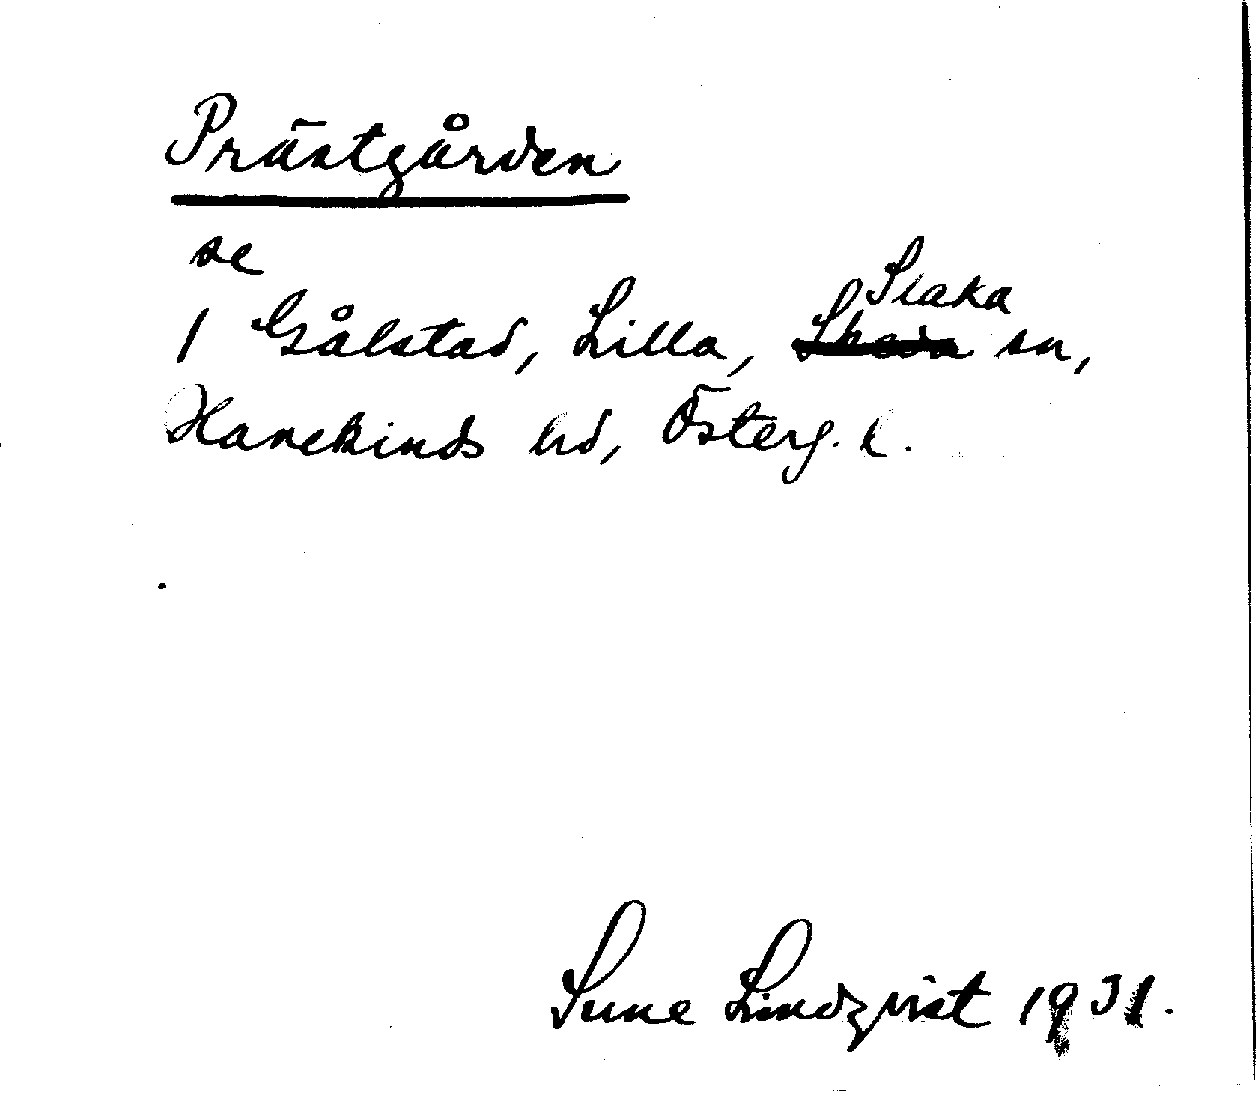 Prästgården
se
1 Gålstad, Lilla, Slaka sn,
Hanekinds hd, Österg. l.
Sune Lindqvist 1931.